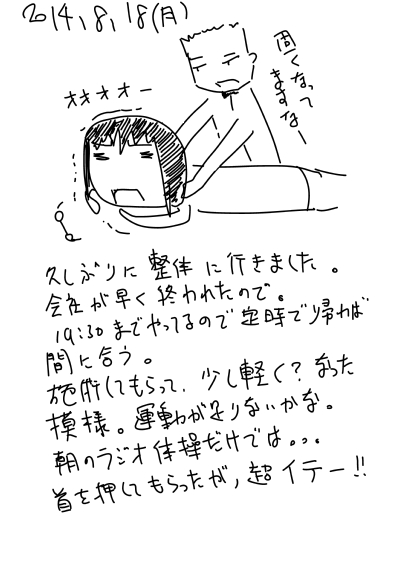 2014,8,18(月)
固くなって
ますなー
オオオオー
久しぶりに整体に行きました。
会社が早く終われたので。
19:30までやってるので定時で帰れば
間に合う。
施術してもらって、少し軽く?なった
模様。運動が足りないかな。
朝のラジオ体操だけでは。。。
首を押してもらったが,超イテー!!